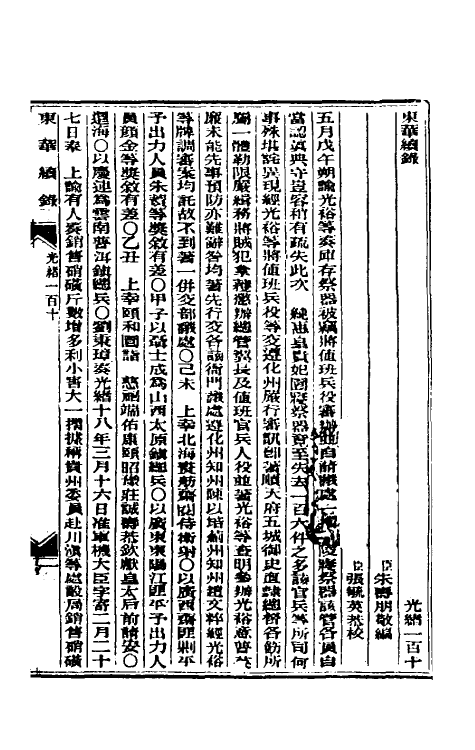 東華續錄
光緒一百十
臣朱壽朋敬編
臣張毓英恭校
五月戊午朔諭光裕等奏庫存祭器被竊將值班兵役審辦並自請議處一摺陵寢祭器該管各員自
當認眞典守豈容稍有疏失此次 純惠皇貴妃園寢祭器竟至失去一百六件之多該官兵等所司何
事殊堪詫異現經光裕等將值班兵役等交遵化州嚴行審訊卽著順天府五城御史直隸總督各飭所
屬一體勒限嚴緝務將賊犯拿獲懲辦總管翼長及值班官兵人役並著光裕等查明參辦光裕意普英
廉未能先事預防亦難辭咎均著先行交各該衙門議處遵化州知州陳以培薊州知州趙文粹經光裕
等牌調審案均託故不到著一併交部議處〇己未 上幸北海賢舫齋閱侍衛射〇以廣西齋匪剿平
予出力人員朱賀等獎敘有差〇甲子以聶士成爲山西太原鎮總兵〇以廣東東陽江匪平予出力人
員顏金等獎敘有差〇乙丑 上幸頤和園詣 慈禧端佑康頤昭豫莊誠壽恭欽獻皇太后前請安〇
還海〇以慶連爲雲南普洱鎮總兵〇劉秉璋奏光緒十八年三月十六日准軍機大臣字寄二月二十
七日奉 上諭有人奏銷售硝磺斤數增多利小害大一摺據稱貴州委員赴川滇等處設局銷售硝磺
東華續錄
光緒一百十